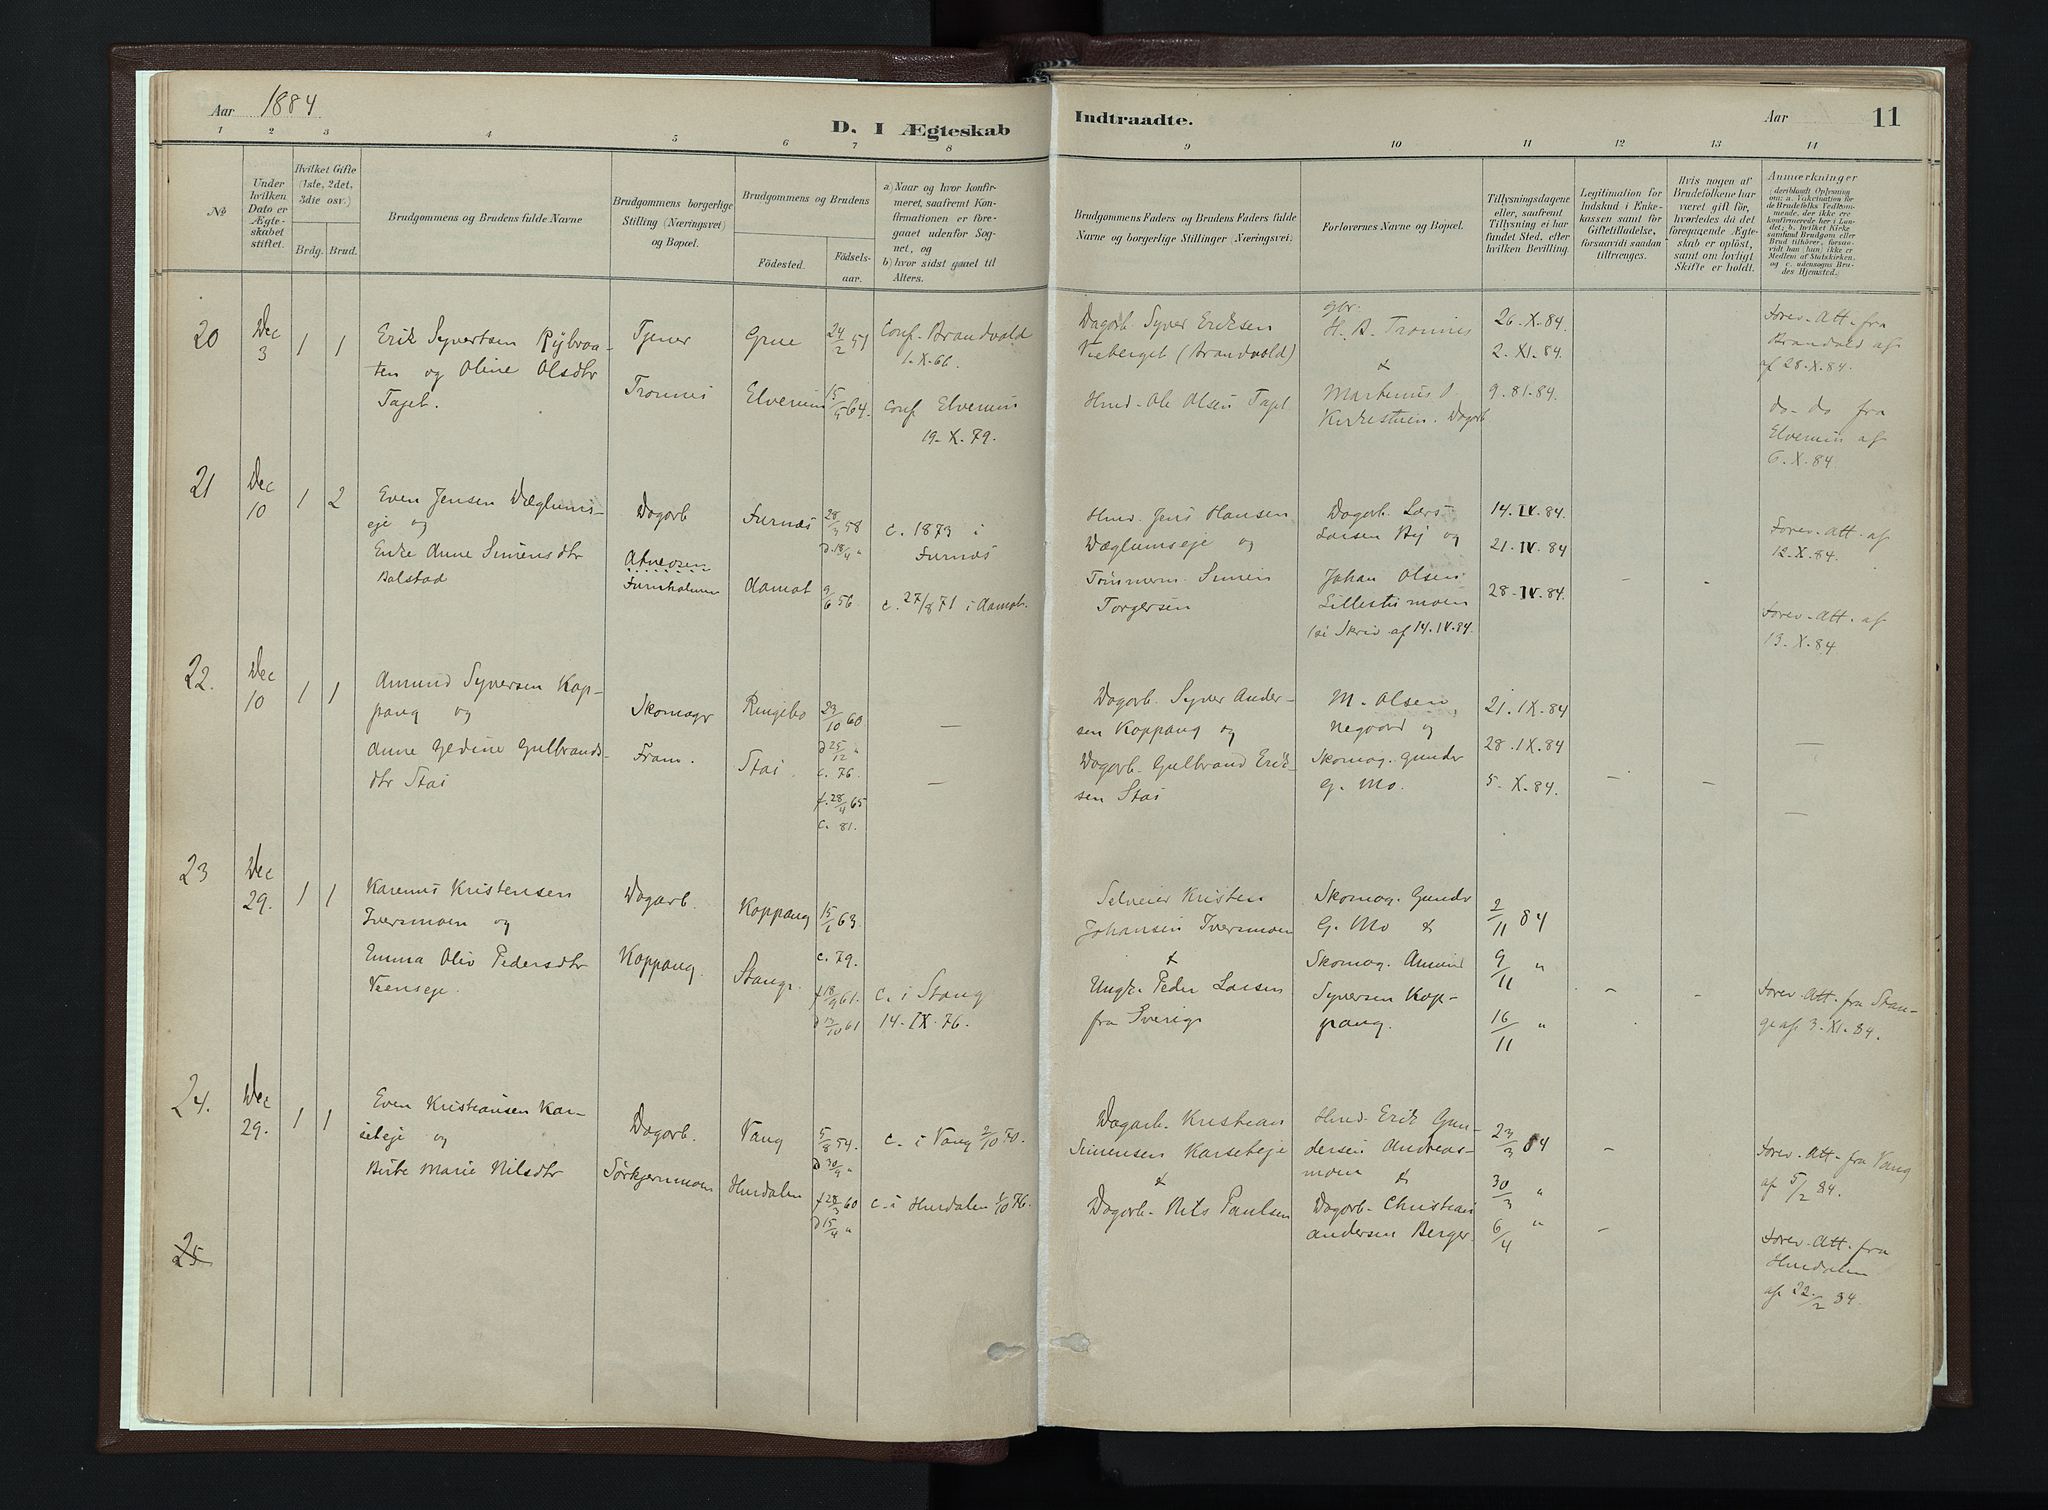 Aar 1884
D. I Ægteskab
Indtraadte.
Aar
11
1 2 3 4 5 6 7 8
9 10 11 12 13 14
No
Under hvilken Dato er Ægteskabet stiftet.
Hvilket Gifte (1ste, 2det, 3die osv.)
Brdg. Brud.
Brudgommens og Brudens fulde Navne
Brudgommens borgerlige Stilling (Næringsvei) og Bopœl.
Brudgommens og Brudens
Födested.
Födselsaar.
a) Naar og hvor konfirmeret, saafremt Konfirmationen er foregaaet udenfor Sognet, og
b) hvor sidst gaael til Alters.
Brudgommens Faders og Brudens Faders fulde Navne og borgerlige Stillinger (Næringsvei.
Forlovernes Navne og Bopœl.
Tillysningsdagene eller, saafremt Tillysning ei har fundet Sted, efter hvilken Bevilling.
Legitimation for Indskud i Enkekassen samt for Giftetilladelse, forsaavidt saadan tiltrœnges.
Hvis nogen af Brudefolkene har vœret gift för, hvorledes da det foregaaende Ægteskab er oplöst, samt om lovligt Skifte er holdt.
Anmœrkninger
20
Dec 3
1 1
Erik Syvertsen Rybraaten og Oline Olsdtr Tagel.
Tjener
Grue
24/2 51
Conf. Brandvold
1.X.66.
Trønnes
Elverum
15/5 64.
Conf. Elverum
19.X.79.
Dagarb. Syver Eriksen
(Brandvold)
Husd. Ole Olsen Tagel
H. B. Trønnes
&
Martinus O.
Kirkestuen. Dagarb
26.X.84.
2.XI.84.
9.81.84.
Forev. Att. fra
Brandvold af
af 28.X.84.
do - do fra
Elverum af
6.X.84.
21
Dec 10
1 2
Even Jensen Væglumseje og
Enke Anne Simensdtr
Bolstad
Dagarb
Atneosen
Furuholmen
Furnæs
28/3 58
D. 18/4 "
c. 1873 i
Furnæs
Aamot
9/6 56.
c. 27/8 71 i Aamot.
Husd. Jens Hansen
Væglumseje og
Tømmerm. Simen
Torgersen
Dagarb. Lars
Larsen Ny og
Johan Olsen
Lillestumoen
Skriv. af 14.IX.84.
14.IX.84.
21.IX.84
28.IX.84.
Forev. Att. af
12.X.84.
Forev. Att. af
13.X.84.
22.
Dec 10
1 1
Amund Syversen Koppang og
Anne Gulbrandsdtr Stai
Skomagr
Fram.
Ringebo
23/10 60
D 25/12 "
c. 76.
Stai.
f. 28/4 65
c. 81.
Dagarb. Syver Andersen Koppang og
Dagarb. Gulbrand Eriksen Stai
M. Olsen,
Negaard og
Skomag. Gunder
G. Mo.
21.IX.84
28.IX.84
5.X.84.
23
Dec 29.
1 1
Karenus Kristensen
Iversmoen og
Emma Oliv Pedersdtr
Veenseje.
Dagarb.
Koppang.
Koppang
15/1 63.
c. 79.
Stange.
f 18/9 61.
D 13/10 61
c. i Stang
14.IX.76.
Selveier Kristen
Johansen Iversmoen
&
Ungk. Peder Larsen
fra Sverig
Skomag. Gundr
G. Mo &
Skomag. Amund
Syversen Koppang.
2/11 84
9/11 "
16/11 "
Forev. Att. fra Stange af 3.XI.84.
24.
Dec 29.
1 1
Even Kristiansen Karsebeje og
Birte Marie Nilsdtr
Dagarb.
Sørkjernmoen
Vang
5/8 54.
D 30/9 "
c. i Vang 2/10 70.
Hurdalen
f. 28/3 60
D 15/4 "
c. i Hurdalen 1/10 76.
Dagarb. Kristian
Simensen Karsebeje
&
Dagarb. Nils Paulsen
Husd. Erik Gundersen Andreasmoen &
Dagarb. Christian
Andersen Berger.
23/3 84
30/3 "
6/4 "
Forev. Att. fra Vang
af 5/2 84.
Forev. Att. fra
Hurdalen
af 22/2 84.
25